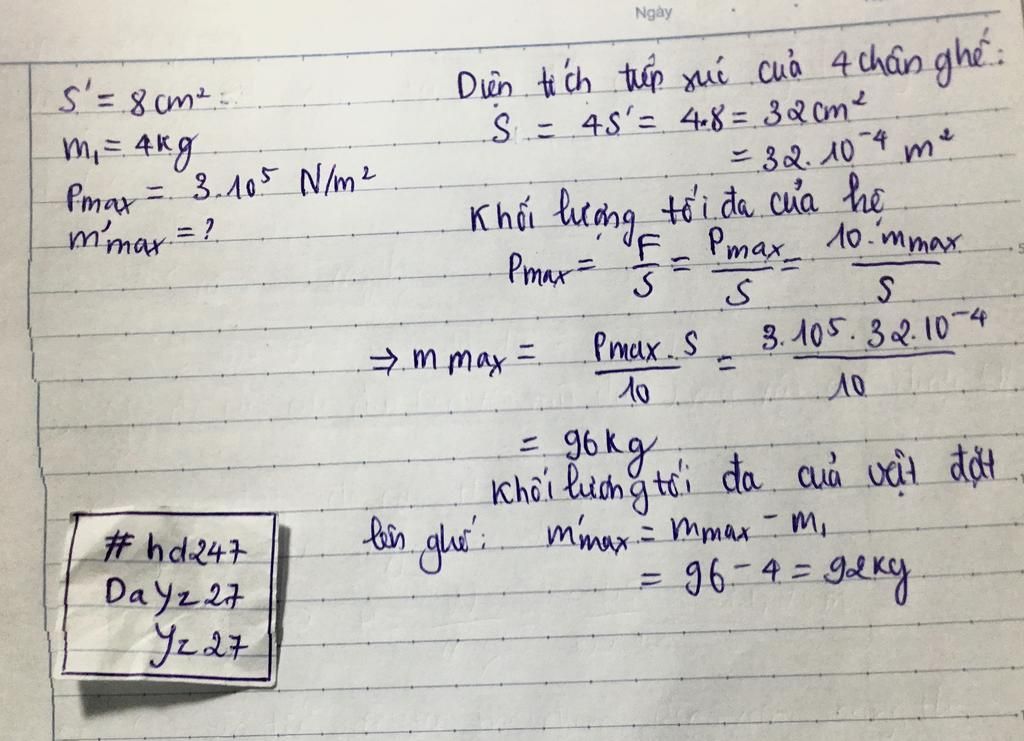 Ngày
S' = 8 cm² =
m₁ = 4kg
Pmax = 3.10⁵ N/m²
m'max = ?
Diện tích tiếp xúc của 4 chân ghế:
S = 4S' = 4.8 = 32 cm²
= 32.10⁻⁴ m²
Khối lượng tối đa của hệ
Pmax = F/S = Pmax/S = 10.mmax/S
⇒ m max = Pmax.S/10 = 3.10⁵.32.10⁻⁴/10
= 96kg
Khối lượng tối đa của vật đặt
lên ghế: m'max = mmax - m₁
= 96 - 4 = 92kg
#hd247
DaYz27
Yz27